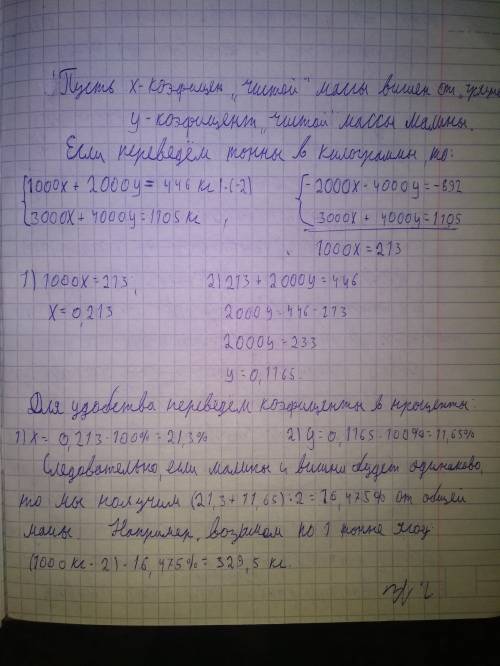 Пусть x-коэфицен „чистой" массы вишен от
y-коэфицент „чистой" массы малины.
Если переведём тонны в килограммы, то:
{1000x + 2000y = 446 кг |·(-2)
3000x + 4000y = 1105 кг ,
{-2000x - 4000y = -892
3000x + 4000y = 1105
1000x = 213
1) 1000x = 213;
x = 0,213
2) 213 + 2000y = 446
2000y = 446 - 213
2000y = 233
y = 0,1165.
Для удобства переведем коэфиценты в проценты:
1) x = 0,213·100% = 21,3%
2) y = 0,1165·100% = 11,65%
Следовательно, если малины и вишни будет одинаково,
то мы получим (21,3 + 11,65) : 2 = 16,475% от общей
массы. Например, возьмем по 1 тонне ягод:
(1000 кг · 2) · 16,475% = 329,5 кг.